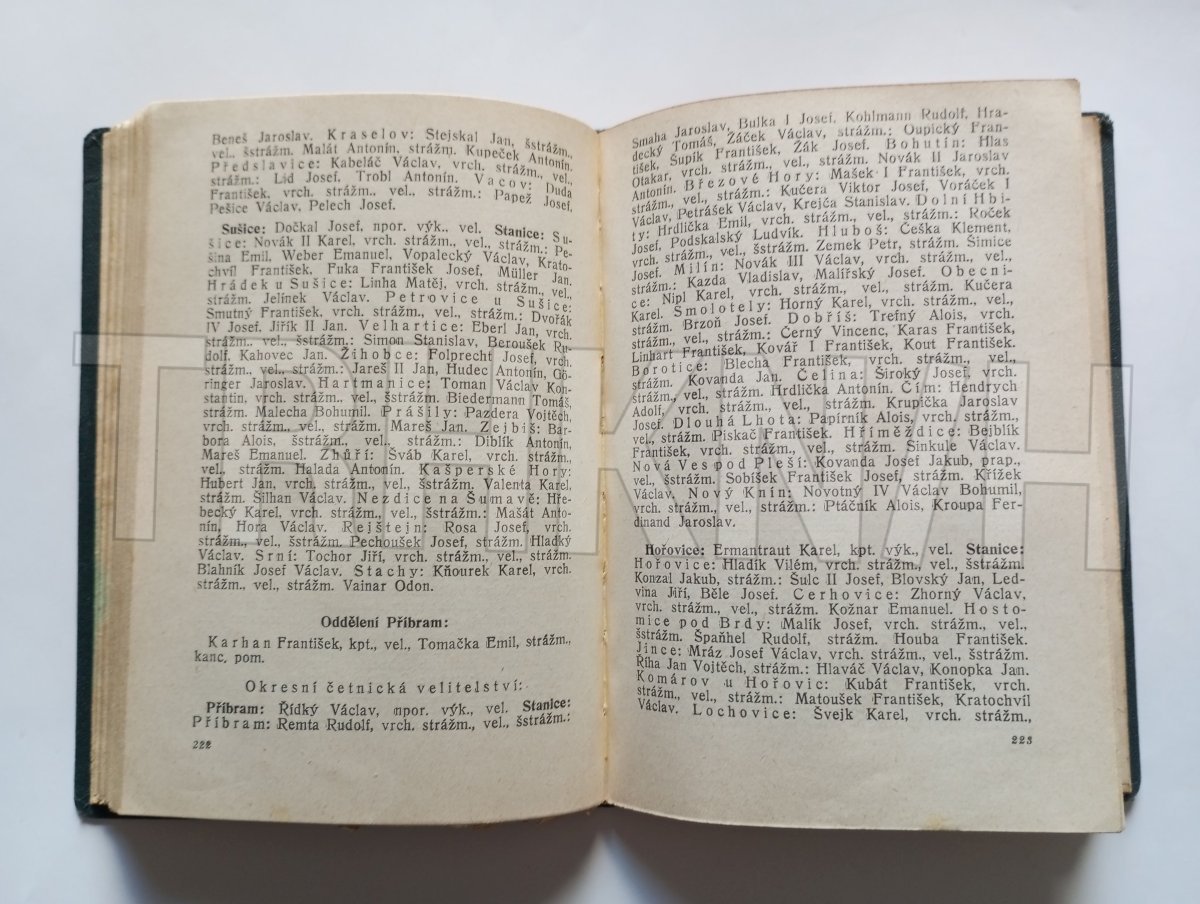 Beneš Jaroslav. Kraselov: Stejskal Jan, šstrážm.,
vel., šstrážm. Malát Antonín, strážm. Kupeček Antonín.
Předslavice: Kabeláč Václav, vrch. strážm., vel.,
strážm.: Lid Josef, Trobl Antonín. Vacov: Duda
František, vrch. strážm., vel., strážm.: Papež Josef,
Pešice Václav, Pelech Josef.
Sušice: Dočkal Josef, npor. výk., vel. Stanice: Su-
šice: Novák II Karel, vrch. strážm., vel., strážm.: Pe-
šina Emil, Weber Emanuel, Vopalecký Václav, Krato-
chvíl František, Fuka František Josef, Müller Jan.
Hrádek u Sušice: Linha Matěj, vrch. strážm., vel.,
strážm. Jelínek Václav. Petrovice u Sušice:
Smutný František, vrch. strážm., vel., strážm.: Dvořák
IV Josef, Jiřík II Jan. Velhartice: Eberl Jan, vrch.
strážm., vel., šstrážm.: Simon Stanislav, Beroušek Ru-
dolf, Kahovec Jan. Žihobce: Folprecht Josef, vrch.
strážm., vel., strážm.: Jareš II Jan, Hudec Antonín, Gö-
ringer Jaroslav. Hartmanice: Toman Václav Kon-
stantin, vrch. strážm., vel., šstrážm. Biedermann Tomáš,
strážm. Malecha Bohumil. Prášily: Pazdera Vojtěch,
vrch. strážm., vel., strážm. Mareš Jan. Zejbiš: Bar-
bora Alois, šstrážm., vel., strážm.: Diblík Antonín,
Mareš Emanuel. Zhůří: Šváb Karel, vrch. strážm.,
vel., strážm. Halada Antonín. Kašperské Hory:
Hubert Jan, vrch, strážm., vel., šstrážm. Valenta Karel,
strážm. Šilhan Václav. Nezdice na Šumavě: Hře-
becký Karel, vrch. strážm., vel., šstrážm.: Mašát Anto-
nín, Hora Václav. Rejštejn: Rosa Josef, vrch.
strážm., vel., šstrážm. Pechoušek Josef, strážm. Hladký
Václav. Srní: Tochor Jiří, vrch. strážm., vel., strážm.
Blahník Josef Václav. Stachy: Kňourek Karel, vrch.
strážm., vel., strážm. Vainar Odon.
Oddělení Příbram:
Karhan František, kpt., vel., Tomačka Emil, strážm.,
kanc. pom.
Okresní četnická velitelství:
Příbram: Řídký Václav, npor. výk., vel. Stanice:
Příbram: Remta Rudolf, vrch. strážm., vel., šstrážm.:
222
Smaha Jaroslav, Bulka I Josef, Kohlmann Rudolf, Hra-
decký Tomáš, Žáček Václav, strážm.: Oupický Fran-
tišek, Šupík František, Žák Josef. Bohutín: Hlas
Otakar, vrch. strážm., vel., strážm. Novák II Jaroslav
Antonín. Březové Hory: Mašek I František, vrch.
strážm., vel., strážm.: Kučera Viktor Josef, Voráček I
Václav, Petrášek Václav, Krejča Stanislav. Dolní Hbi-
ty: Hrdlička Emil, vrch. strážm., vel., strážm.: Roček
Josef, Podskalský Ludvík. Hluboš: Češka Klement,
vrch. strážm., vel., šstrážm. Zemek Petr, strážm. Šimice
Josef. Milín: Novák III Václav, vrch. strážm., vel.,
strážm.: Kazda Vladislav, Malířský Josef. Obecni-
ce: Nipl Karel, vrch. strážm., vel., strážm. Kučera
Karel. Smolotely: Horný Karel, vrch. strážm., vel.,
strážm. Brzoň Josef. Dobříš: Trefný Alois, vrch.
strážm., vel., strážm.: Černý Vincenc, Karas František,
Linhart František, Kovář I František, Kout František.
Borotice: Blecha František, vrch. strážm., vel.,
strážm. Kovanda Jan. Čelina: Široký Josef, vrch.
strážm., vel., strážm. Hrdlička Antonín. Čím: Hendrych
Adolf, vrch. strážm., vel., strážm. Krupička Jaroslav
Josef. Dlouhá Lhota: Papírník Alois, vrch. strážm.,
vel., strážm. Piskač František. Hříměždice: Bejblík
František, vrch. strážm., vel., strážm. Šinkule Václav.
Nová Ves pod Pleší: Kovanda Josef Jakub, prap.,
vel., šstrážm. Sobíšek František Josef, strážm. Křížek
Václav. Nový Knín: Novotný IV Václav Bohumil,
vrch. strážm., vel., strážm.: Ptáčník Alois, Kroupa Fer-
dinand Jaroslav.
Hořovice: Ermantraut Karel, kpt. výk., vel. Stanice:
Hořovice: Hladík Vilém, vrch. strážm., vel., šstrážm.
Konzal Jakub, strážm.: Šulc II Josef, Blovský Jan, Led-
vina Jiří, Běle Josef. Cerhovice: Zhorný Václav,
vrch. strážm., vel., strážm. Kožnar Emanuel. Hosto-
mice pod Brdy: Malík Josef, vrch. strážm., vel.,
šstrážm. Špaňhel Rudolf, strážm. Houba František.
Jince: Mráz Josef Václav, vrch. strážm., vel., strážm.
Říha Jan Vojtěch, strážm.: Hlaváč Václav, Konopka Jan.
Komárov u Hořovic: Kubát František, vrch.
strážm., vel., strážm.: Matoušek František, Kratochvíl
Václav. Lochovice: Švejk Karel, vrch. strážm.,
223